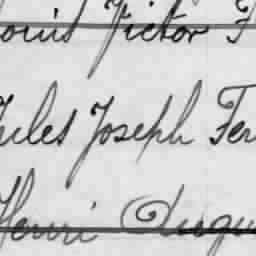 Louis Victor F
Jules Joseph Fer
Henri Augu